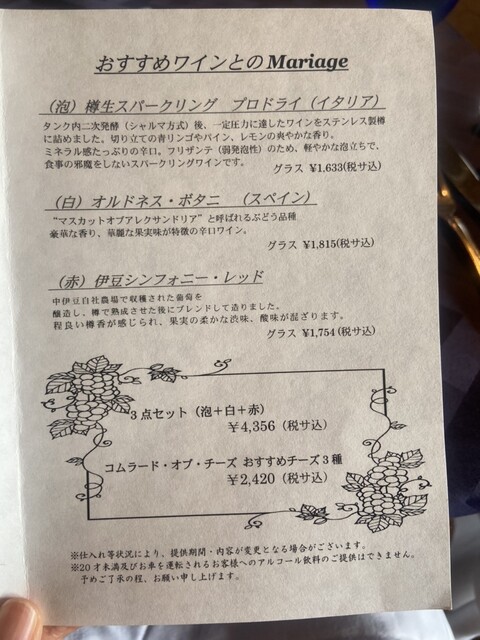 おすすめワインとのMariage
（泡）樽生スパークリング　プロドライ（イタリア）
タンク内二次発酵（シャルマ方式）後、一定圧力に達したワインをステンレス製樽
に詰めました。切り立ての青リンゴやパイン、レモンの爽やかな香り。
ミネラル感たっぷりの辛口。フリザンテ（弱発泡性）のため、軽やかな泡立ちで、
食事の邪魔をしないスパークリングワインです。
グラス ¥1,633(税サ込)
（白）オルドネス・ボタニ　（スペイン）
“マスカットオブアレクサンドリア”と呼ばれるぶどう品種
豪華な香り、華麗な果実味が特徴の辛口ワイン。
グラス ¥1,815(税サ込)
（赤）伊豆シンフォニー・レッド
中伊豆自社農場で収穫された葡萄を
醸造し、樽で熟成させた後にブレンドして造りました。
程良い樽香が感じられ、果実の柔かな渋味、酸味が混ざります。
グラス ¥1,754(税サ込)
3点セット（泡＋白＋赤）
￥4,356（税サ込）
コムラード・オブ・チーズ おすすめチーズ3種
￥2,420（税サ込）
※仕入れ等状況により、提供期間・内容が変更となる場合がございます。
※20才未満及びお車を運転されるお客様へのアルコール飲料のご提供はできません。
予めご了承の程、お願い申し上げます。